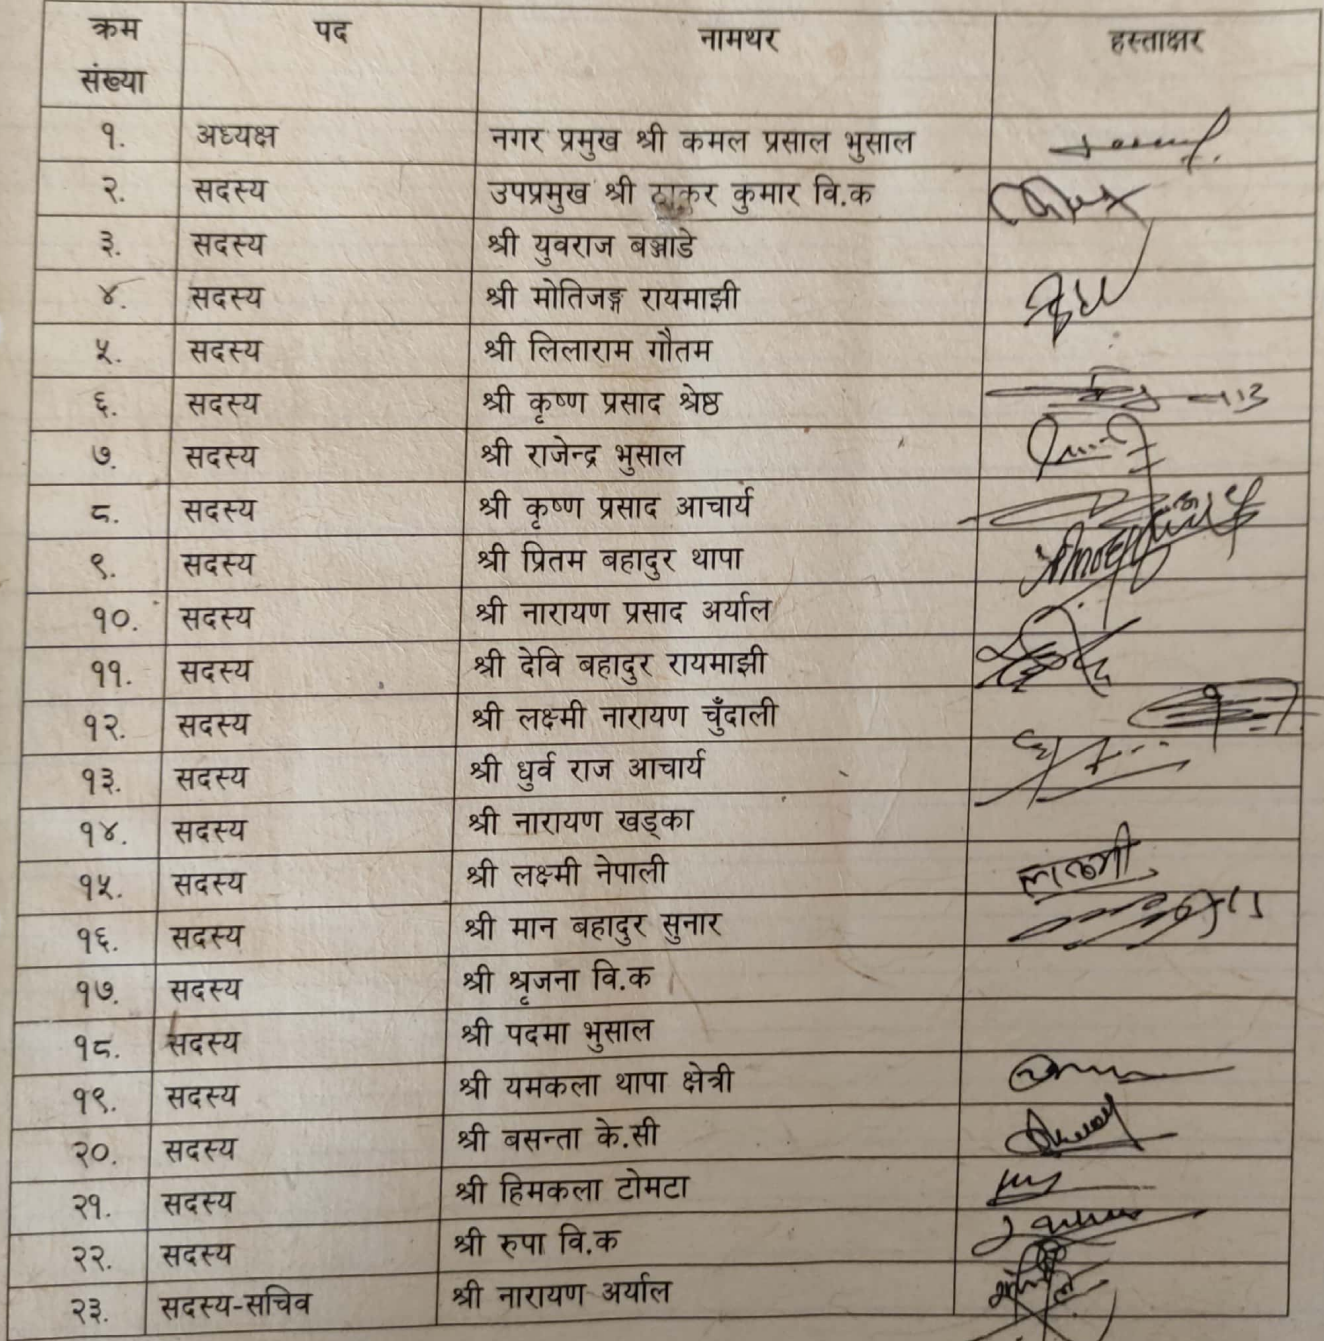 क्रम संख्या पद नामथर हस्ताक्षर
१. अध्यक्ष नगर प्रमुख श्री कमल प्रसाल भुसाल
२. सदस्य उपप्रमुख श्री ठाकुर कुमार वि.क
३. सदस्य श्री युवराज बञ्जाडे
४. सदस्य श्री मोतिजङ्ग रायमाझी
५. सदस्य श्री लिलाराम गौतम
६. सदस्य श्री कृष्ण प्रसाद श्रेष्ठ
७. सदस्य श्री राजेन्द्र भुसाल
८. सदस्य श्री कृष्ण प्रसाद आचार्य
९. सदस्य श्री प्रितम बहादुर थापा
१०. सदस्य श्री नारायण प्रसाद अर्याल
११. सदस्य श्री देवि बहादुर रायमाझी
१२. सदस्य श्री लक्ष्मी नारायण चुँदाली
१३. सदस्य श्री धुर्व राज आचार्य
१४. सदस्य श्री नारायण खड्का
१५. सदस्य श्री लक्ष्मी नेपाली
१६. सदस्य श्री मान बहादुर सुनार
१७. सदस्य श्री श्रृजना वि.क
१८. सदस्य श्री पदमा भुसाल
१९. सदस्य श्री यमकला थापा क्षेत्री
२०. सदस्य श्री बसन्ता के.सी
२१. सदस्य श्री हिमकला टोमटा
२२. सदस्य श्री रुपा वि.क
२३. सदस्य-सचिव श्री नारायण अर्याल